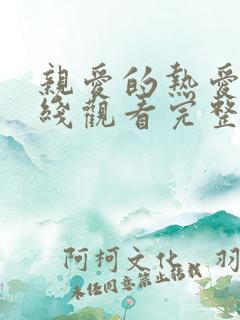 親愛的熱愛
綫觀看完整
阿柯文化 羽
未经同意禁止转载